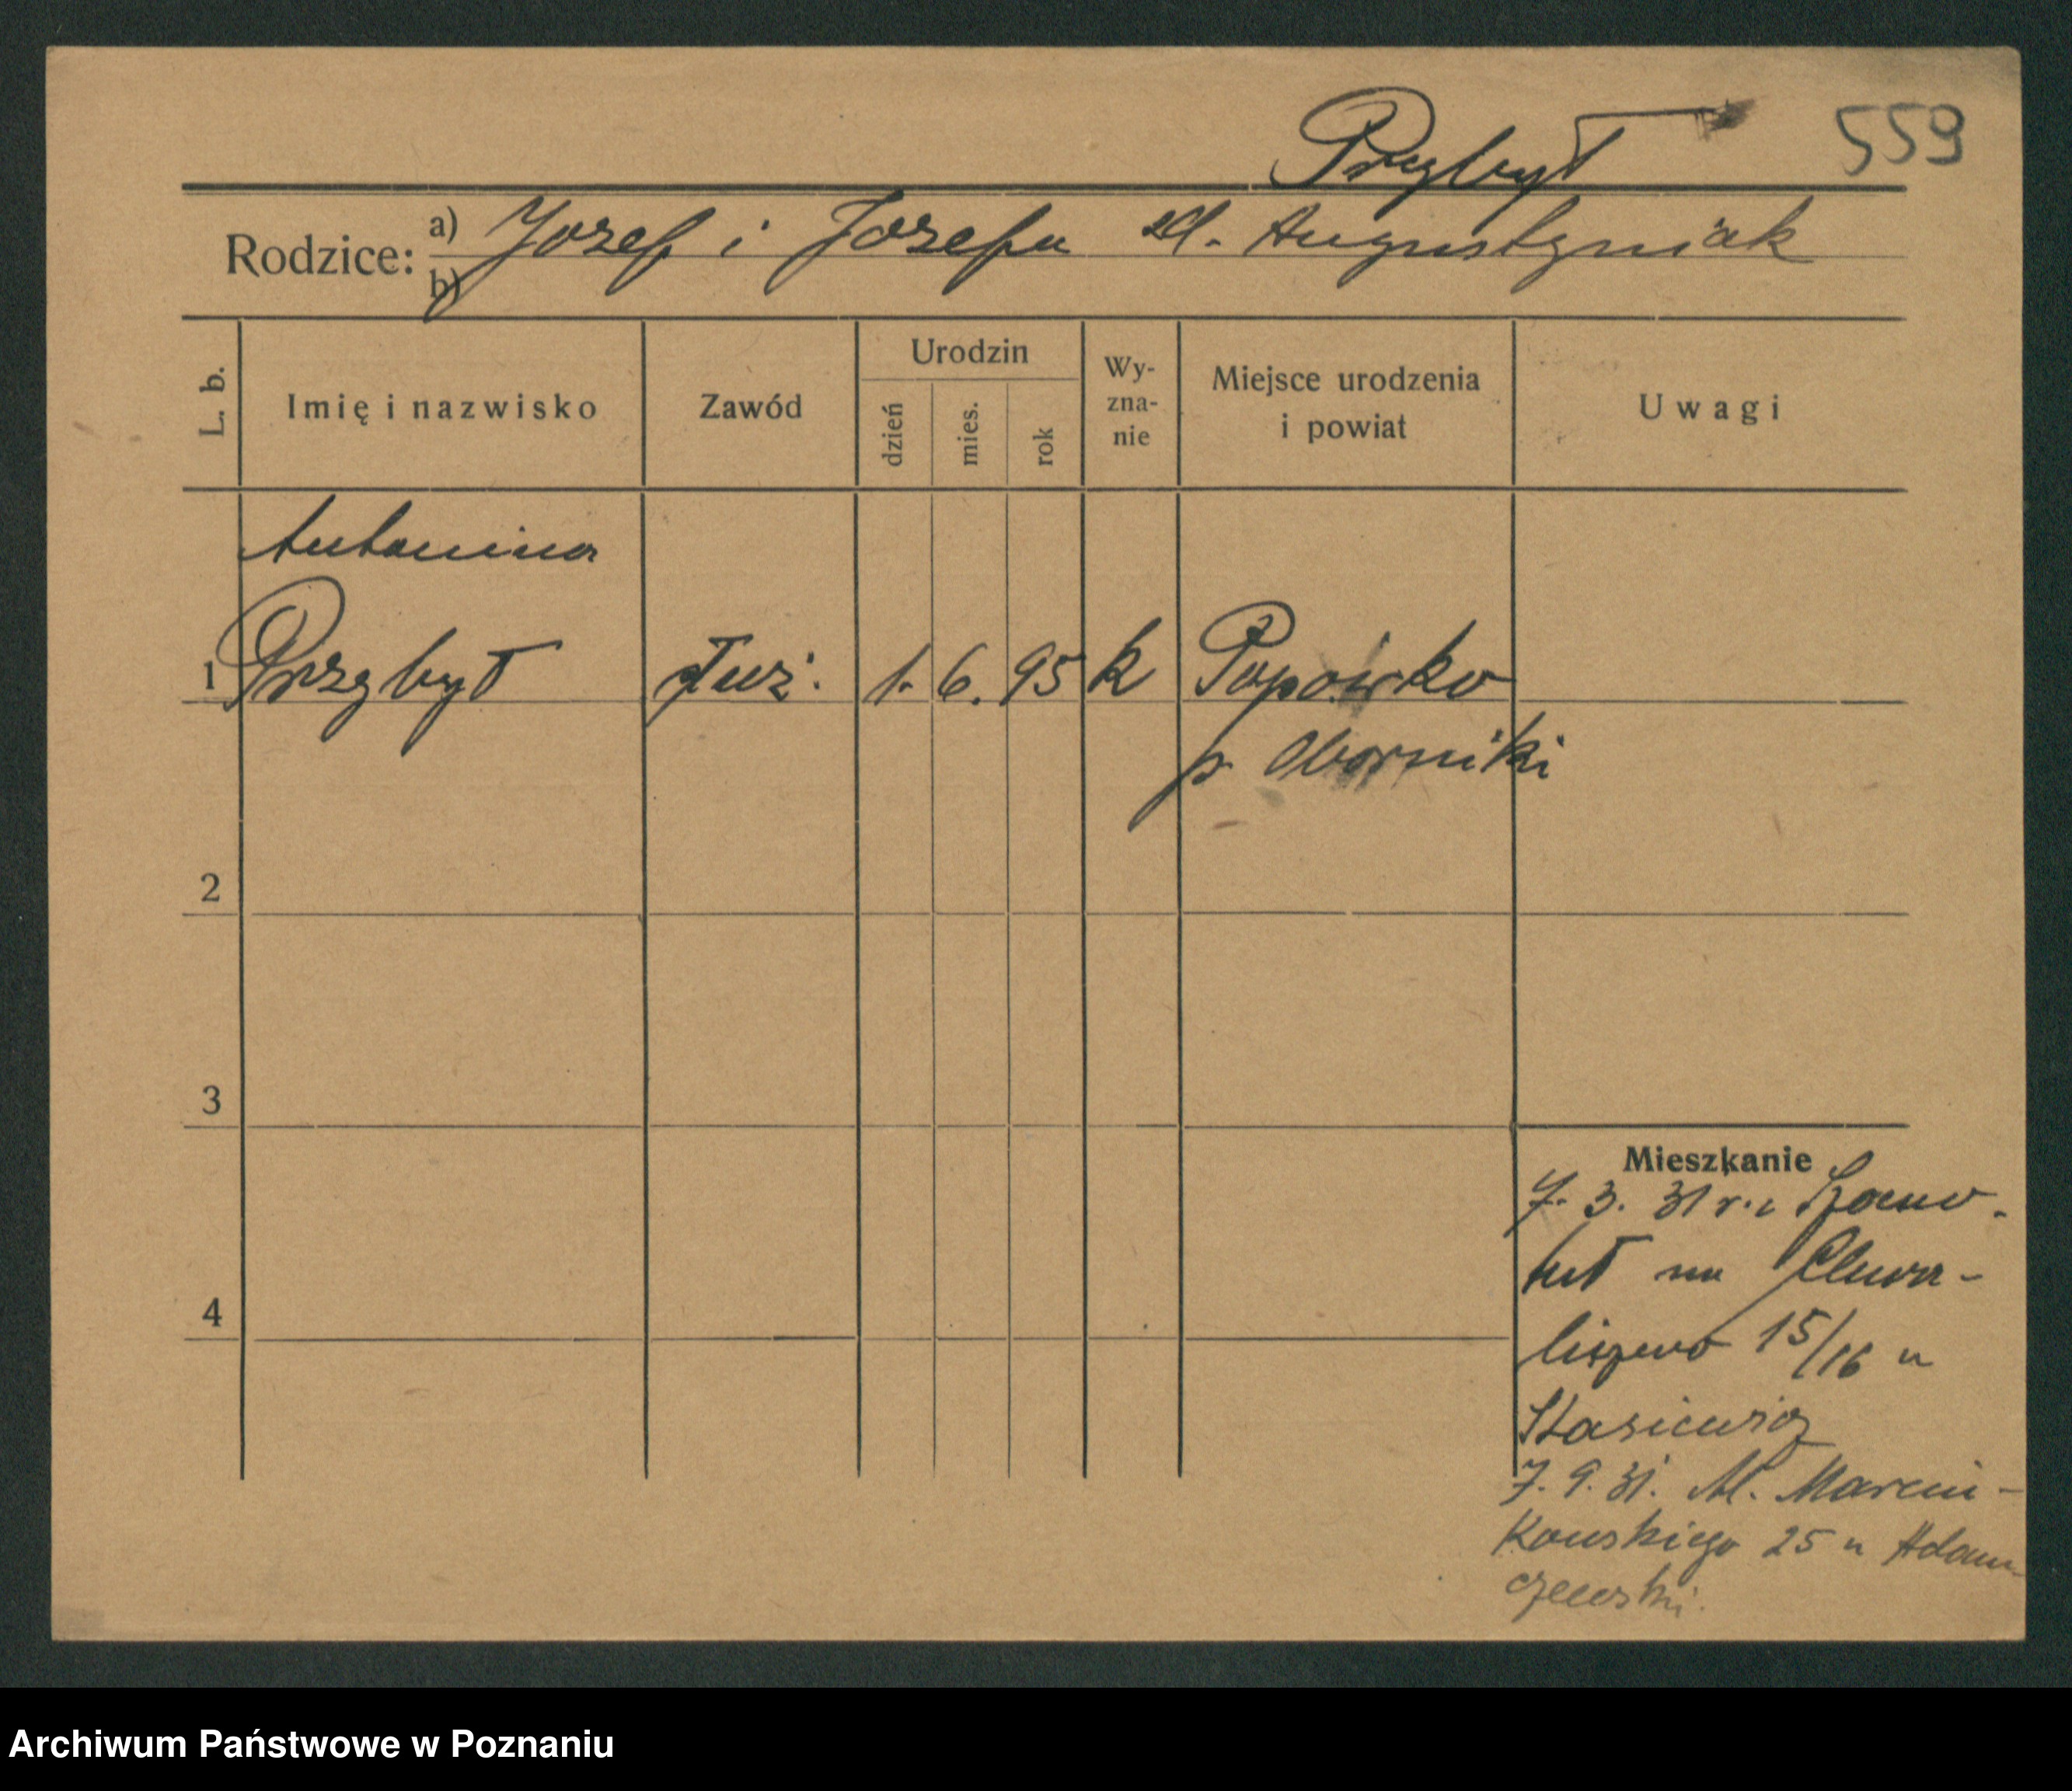 559
Przybył
Rodzice: a) Jozef i Jozefa zd. Augustyniak
b)
L. b. Imię i nazwisko Zawód Urodzin dzień mies. rok Wy-zna-nie Miejsce urodzenia i powiat Uwagi
Antonina
1 Przybył służ. 1. 6. 95 k Popówko
p. Oborniki
2
3
Mieszkanie
7. 3. 31 r. z Szamo-
tuł na Chwa-
4
liszewo 15/16 u
Stasiewicz
7. 9. 31. M. Marcin-
kowskiego 25 u Adam-
czewski.
Archiwum Państwowe w Poznaniu